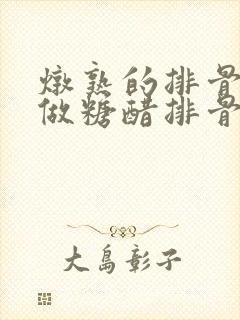 燉熟的排骨
做糖醋排骨
大島彰子